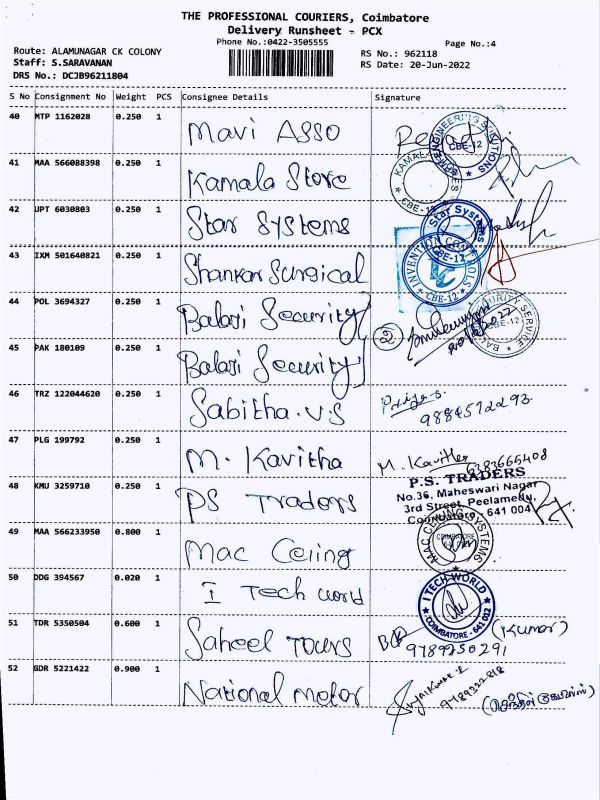 THE PROFESSIONAL COURIERS, Coimbatore
Delivery Runsheet - PCX
Phone No.:0422-3505555
Page No.:4
Route: ALAMUNAGAR CK COLONY
RS No.: 962118
Staff: S.SARAVANAN
RS Date: 20-Jun-2022
DRS No.: DCJB96211804
S No Consignment No Weight PCS Consignee Details Signature
40 MTP 1162028 0.250 1 Mavi ASSO
ENGINEERING SOLUTIONS CBE-12
41 MAA 566088398 0.250 1 Kamala Store
KAMALA CBE-12
42 UPT 6030803 0.250 1 Star Systems
Star Systems CBE-12
43 IXM 501640821 0.250 1 Shankar Surgical
INVENTION CONTROLS CBE-12
44 POL 3694327 0.250 1 Balaji Security
2 20/6/2022 SECURITY SERVICE CBE-12
45 PAK 180109 0.250 1 Balaji Security
46 TRZ 122044620 0.250 1 Sabitha.V.S
Priya.S.
9884512293
47 PLG 199792 0.250 1 M. Kavitha M. Kavitha
6383665408
48 KMU 3259710 0.250 1 PS Traders
P.S. TRADERS
No.36, Maheswari Nagar
3rd Street, Peelamedu,
Coimbatore - 641 004
49 MAA 566233950 0.800 1 Mac Ceiing
MAC CEILING SYSTEMS COIMBATORE
50 DDG 394567 0.020 1 I Tech world
I TECH WORLD COIMBATORE - 641 012
51 TDR 5350504 0.600 1 Saheel Tours (Kumar)
9789250291
52 GDR 5221422 0.900 1 National motor